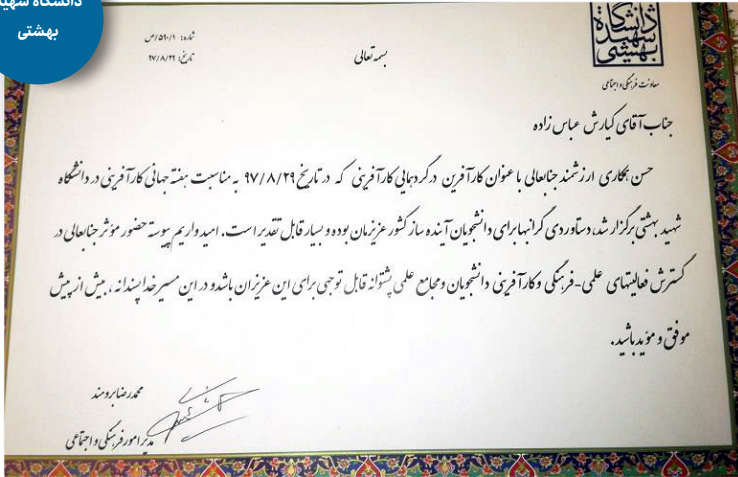 دانشگاه شهید
بهشتی
دانشگاه
شهید
بهشتی
معاونت فرهنگی و اجتماعی
بسمه تعالی
شماره: ۵۹۰/۱/ص
تاریخ: ۹۷/۸/۲۹
جناب آقای کیارش عباس زاده
حسن همکاری ارزشمند جنابعالی با عنوان کارآفرین در گردهمایی کارآفرینی که در تاریخ ۹۷/۸/۲۹ به مناسبت هفته جهانی کارآفرینی در دانشگاه
شهید بهشتی برگزار شد، دستاوردی گرانبها برای دانشجویان آینده ساز کشور عزیزمان بوده و بسیار قابل تقدیر است. امید واریم پیوسته حضور مؤثر جنابعالی در
گسترش فعالیتهای علمی-فرهنگی و کارآفرینی دانشجویان و مجامع علمی پشتوانه قابل توجهی برای این عزیزان باشد و در این مسیر خداپسندانه، بیش از پیش
موفق و مؤید باشید.
محمدرضا برومند
مدیر امور فرهنگی و اجتماعی